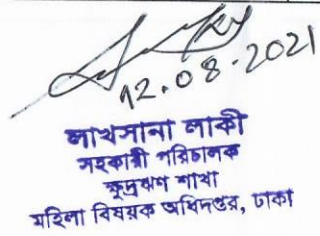 12.08.2021
লাখসানা লাকী
সহকারী পরিচালক
ক্ষুদ্রঋণ শাখা
মহিলা বিষয়ক অধিদপ্তর, ঢাকা